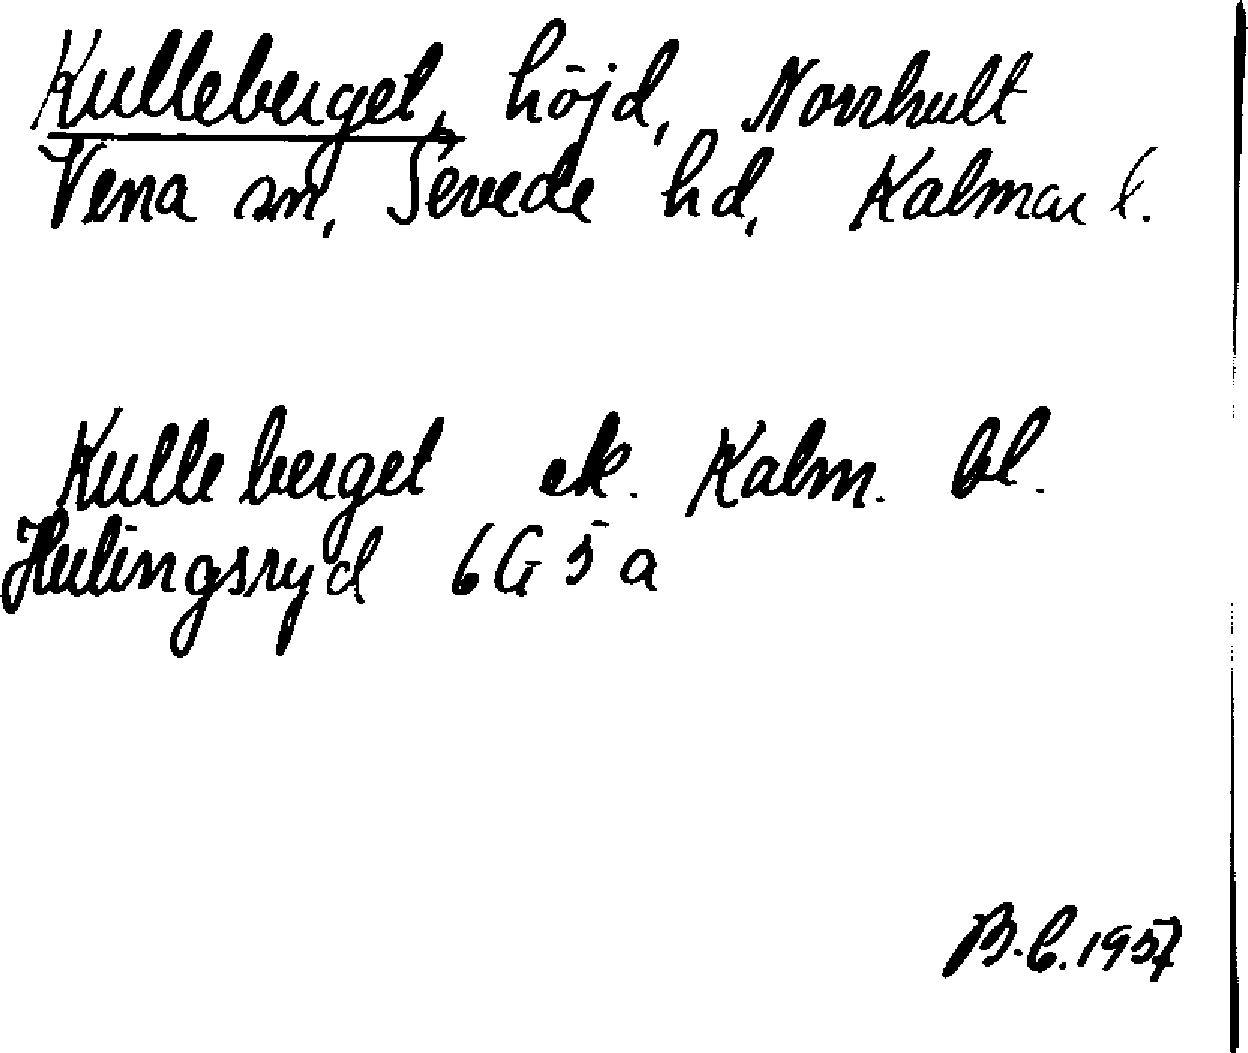 Kulleberget, höjd, Norrhult
Vena sn, Sevede hd, Kalmar l.
Kulleberget ek. Kalm. bl.
Hulingsryd 6G 5 a
B.L. 1957